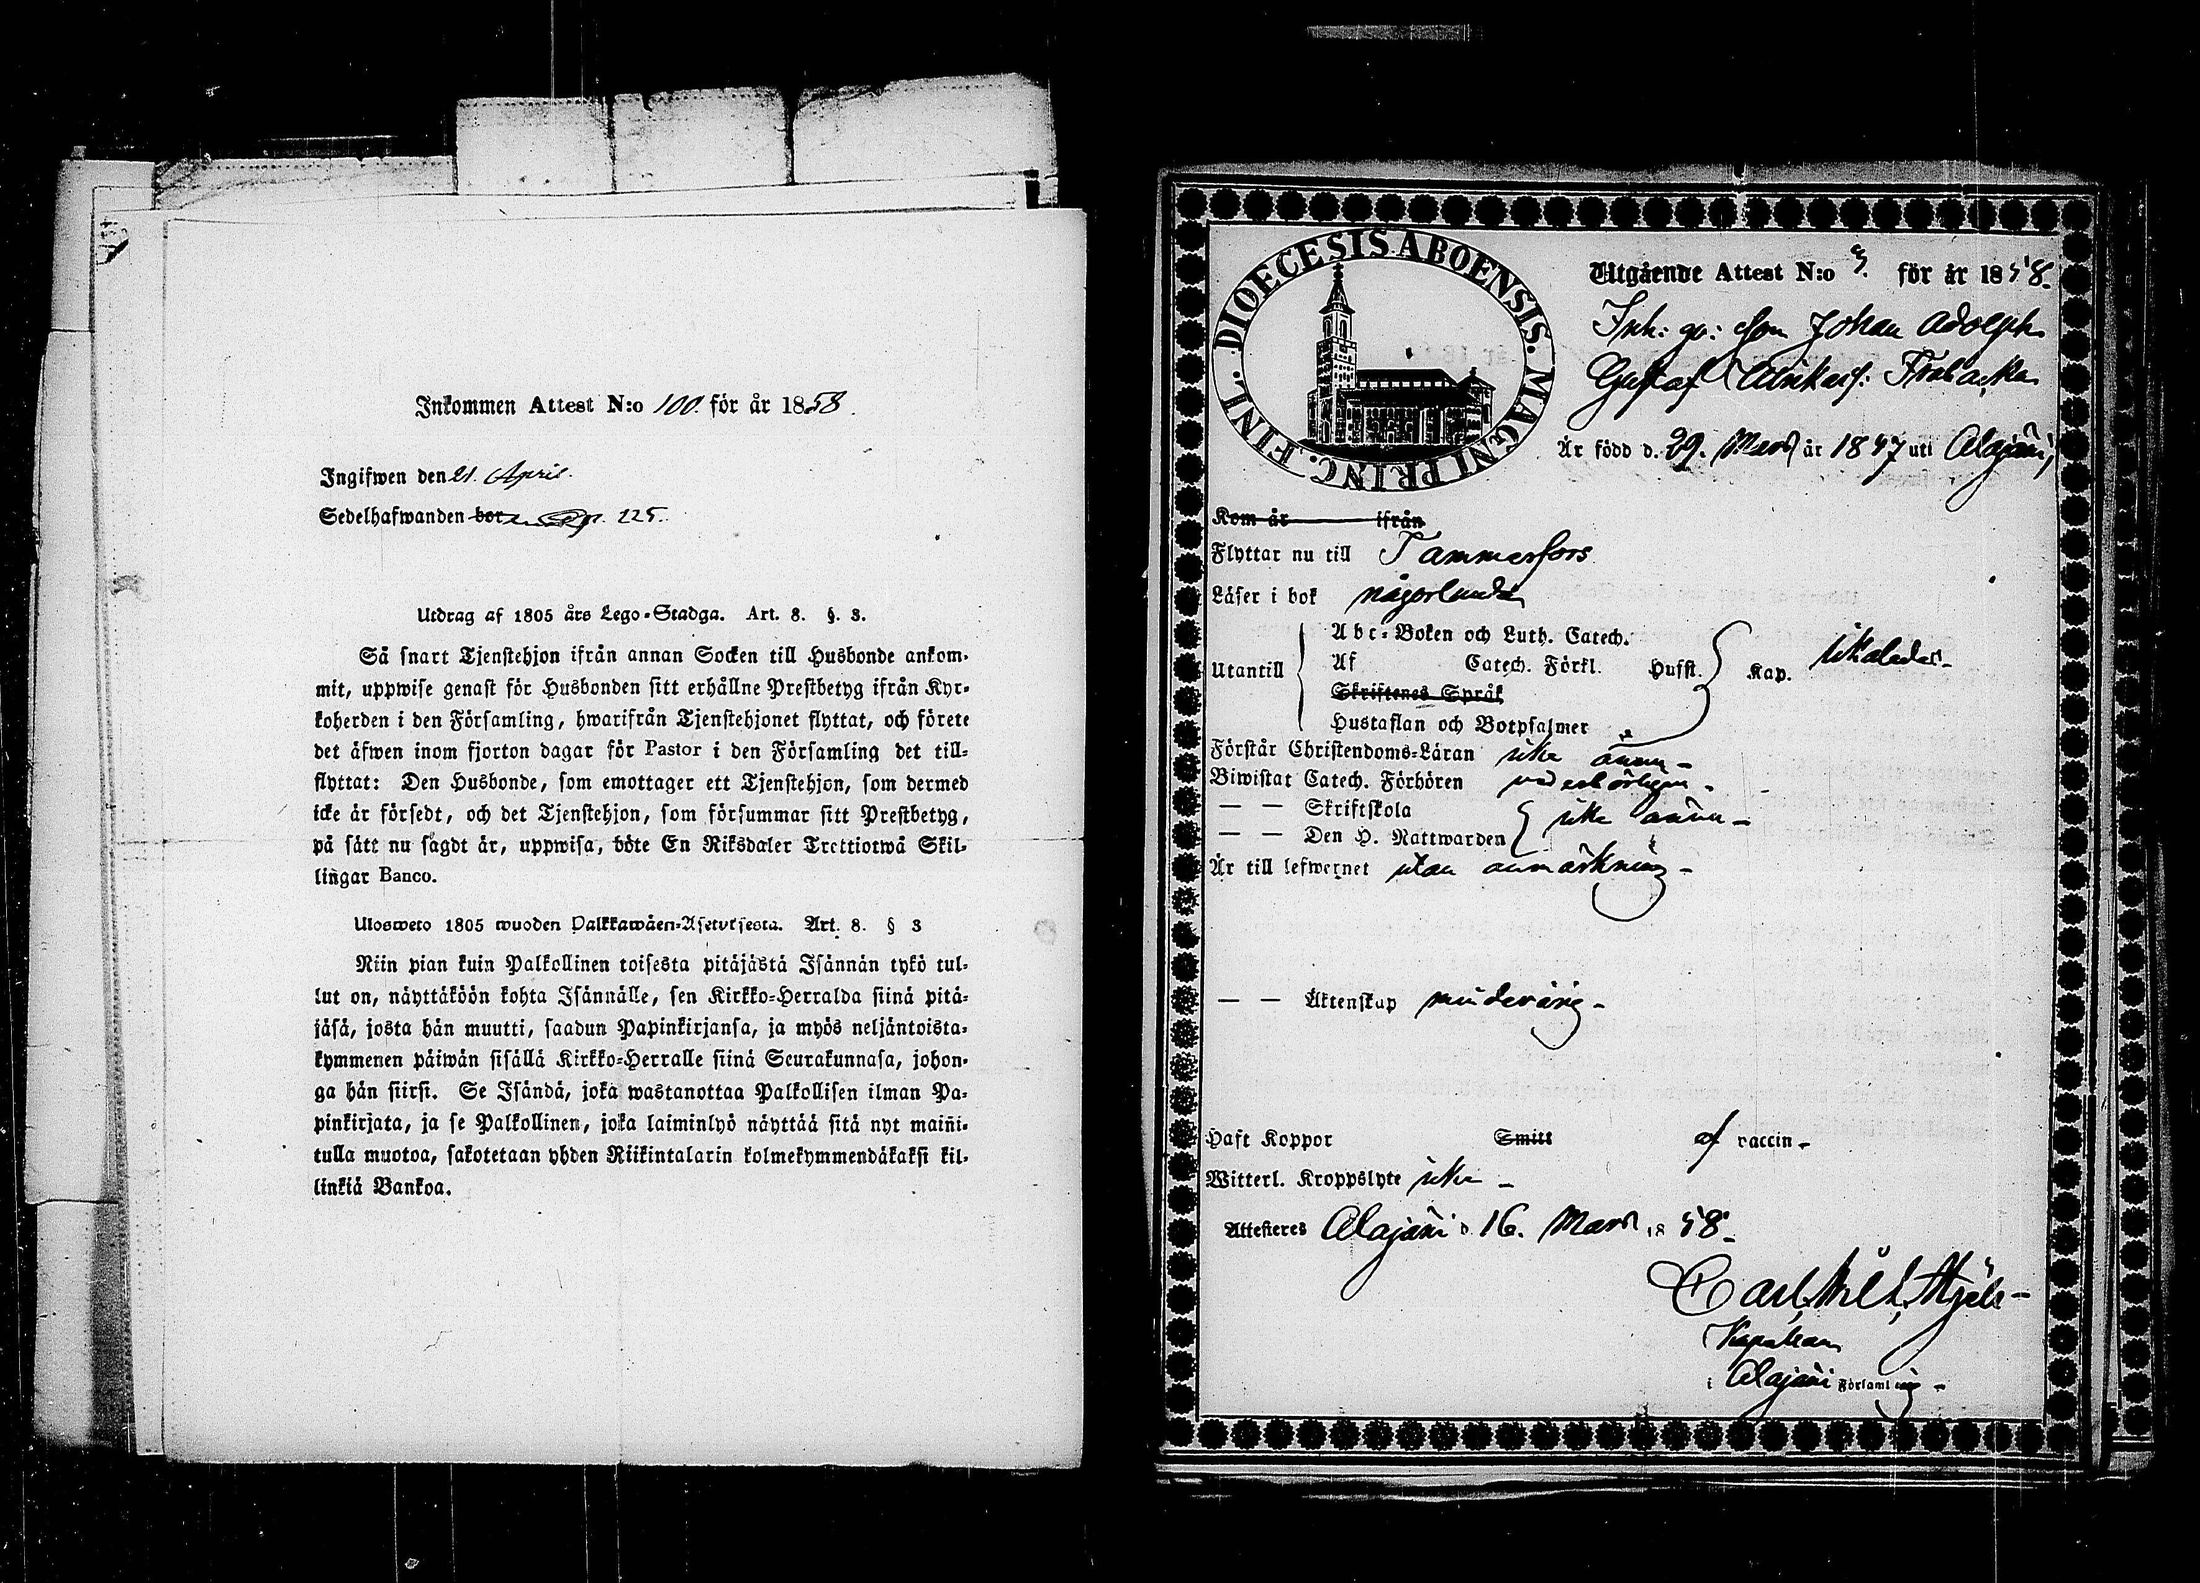 Inkommen Attest N:o 100. för år 1858.
Ingifwen den 21. April.
Sedelhafwanden bor 225.
Utdrag af 1805 års Lego-Stadga. Art. 8. §. 3.
Så snart Tjenstehjon ifrån annan Socken till Husbonde ankom-
mit, uppwise genast för Husbonden sitt erhållne Prestbetyg ifrån Kyr-
koherden i den Församling, hwarifrån Tjenstehjonet flyttat, och förete
det äfwen inom fjorton dagar för Pastor i den Församling det till-
flyttat: Den Husbonde, som emottager ett Tjenstehjon, som dermed
icke är försedt, och det Tjenstehjon, som försummar sitt Prestbetyg,
på sätt nu sagdt är, uppwisa, böte En Riksdaler Trettiotwå Skil-
lingar Banco.
Ulosweto 1805 wuoden Palkkawäen-Asetuksesta. Art. 8. § 3
Niin pian kuin Palkollinen toisesta pitäjästä Isännän tykö tul-
lut on, näyttäköön kohta Isännälle, sen Kirkko-Herralda siinä pitä-
jäsä, josta hän muutti, saadun Papinkirjansa, ja myös neljäntoista-
kymmenen päiwän sisällä Kirkko-Herralle siinä Seurakunnasa, johon-
ga hän siirsi. Se Isändä, joka wastanottaa Palkollisen ilman Pa-
pinkirjata, ja se Palkollinen, joka laiminlyö näyttää sitä nyt maiñi-
tulla muotoa, sakotetaan yhden Riikintalarin kolmekymmendäkaksi kil-
linkiä Bankoa.
DIOECESIS ABOENSIS. MAGNI PRINC. FINL.
Utgående Attest N:o 3. för år 1858.
Inh: Son Johan Adolph
Gustaf
Är född d. 29. Mars år 1847 uti Alajärvi,
Kom år ifrån
Flyttar nu till Tammerfors
Läser i bok någorlunda
Utantill
Abc-Boken och Luth. Catech.
Af Catech. Förkl. Hufst. Kap.
Skriftenes Språk
Hustaflan och Botpsalmer
Förstår Christendoms-Läran icke ännu -
Biwistat Catech. Förhören vederbörligen.
— — Skriftskola icke ännu -
— — Den H. Nattwarden
Är till lefwernet utan anmärkning -
— — Äktenskap minderårig -
Haft Koppor Smitt af vaccin -
Witterl. Kroppslyte icke -
Attesteres Alajärvi d. 16. Mars 1858.
Carl
Kapellan
i Alajärvi Församling -